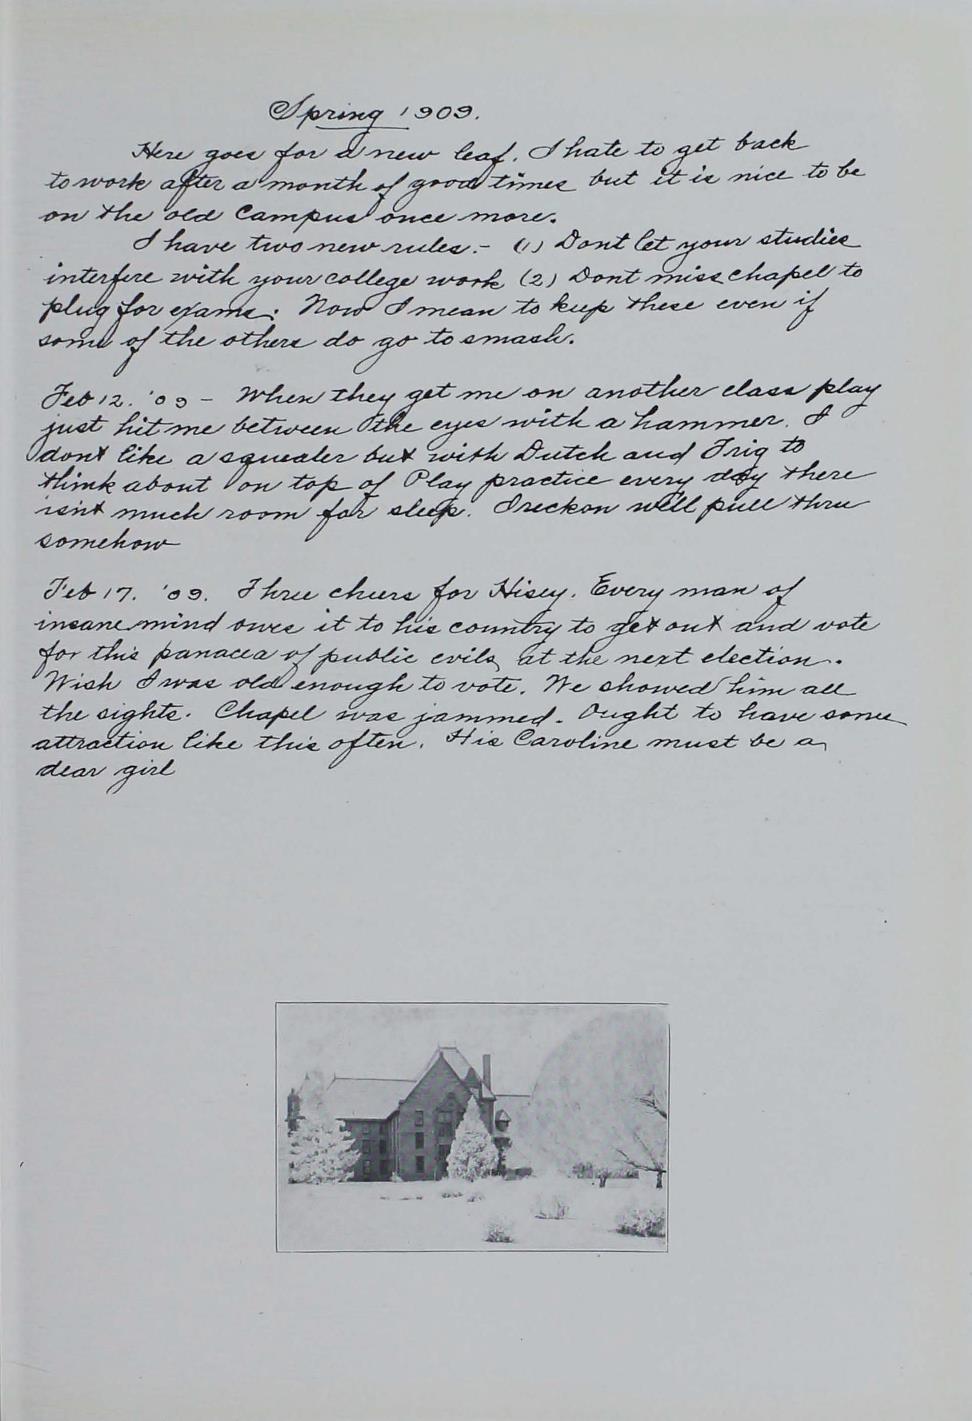 Spring 1909.
Here goes for a new leaf. I hate to get back
to work after a month of good times but it is nice to be
on the old Campus once more.
I have two new rules:- (1) Dont let your studies
interfere with your college work (2) Dont miss chapel to
plug for exams: Now I mean to keep these even if
some of the others do go to smash.
Feb 12. '09 - When they get me on another class play
just hit me between the eyes with a hammer. I
dont like a squealer but with Dutch and Trig to
think about on top of Play practice every day there
isnt much room for sleep. I reckon we'll pull thru
somehow
Feb 17. '09. Three cheers for Hisey. Every man of
insane mind owes it to his country to get out and vote
for this panacea of public evils, at the next election.
Wish I was old enough to vote. We showed him all
the sights. Chapel was jammed. Ought to have some
attraction like this often. His Caroline must be a
dear girl